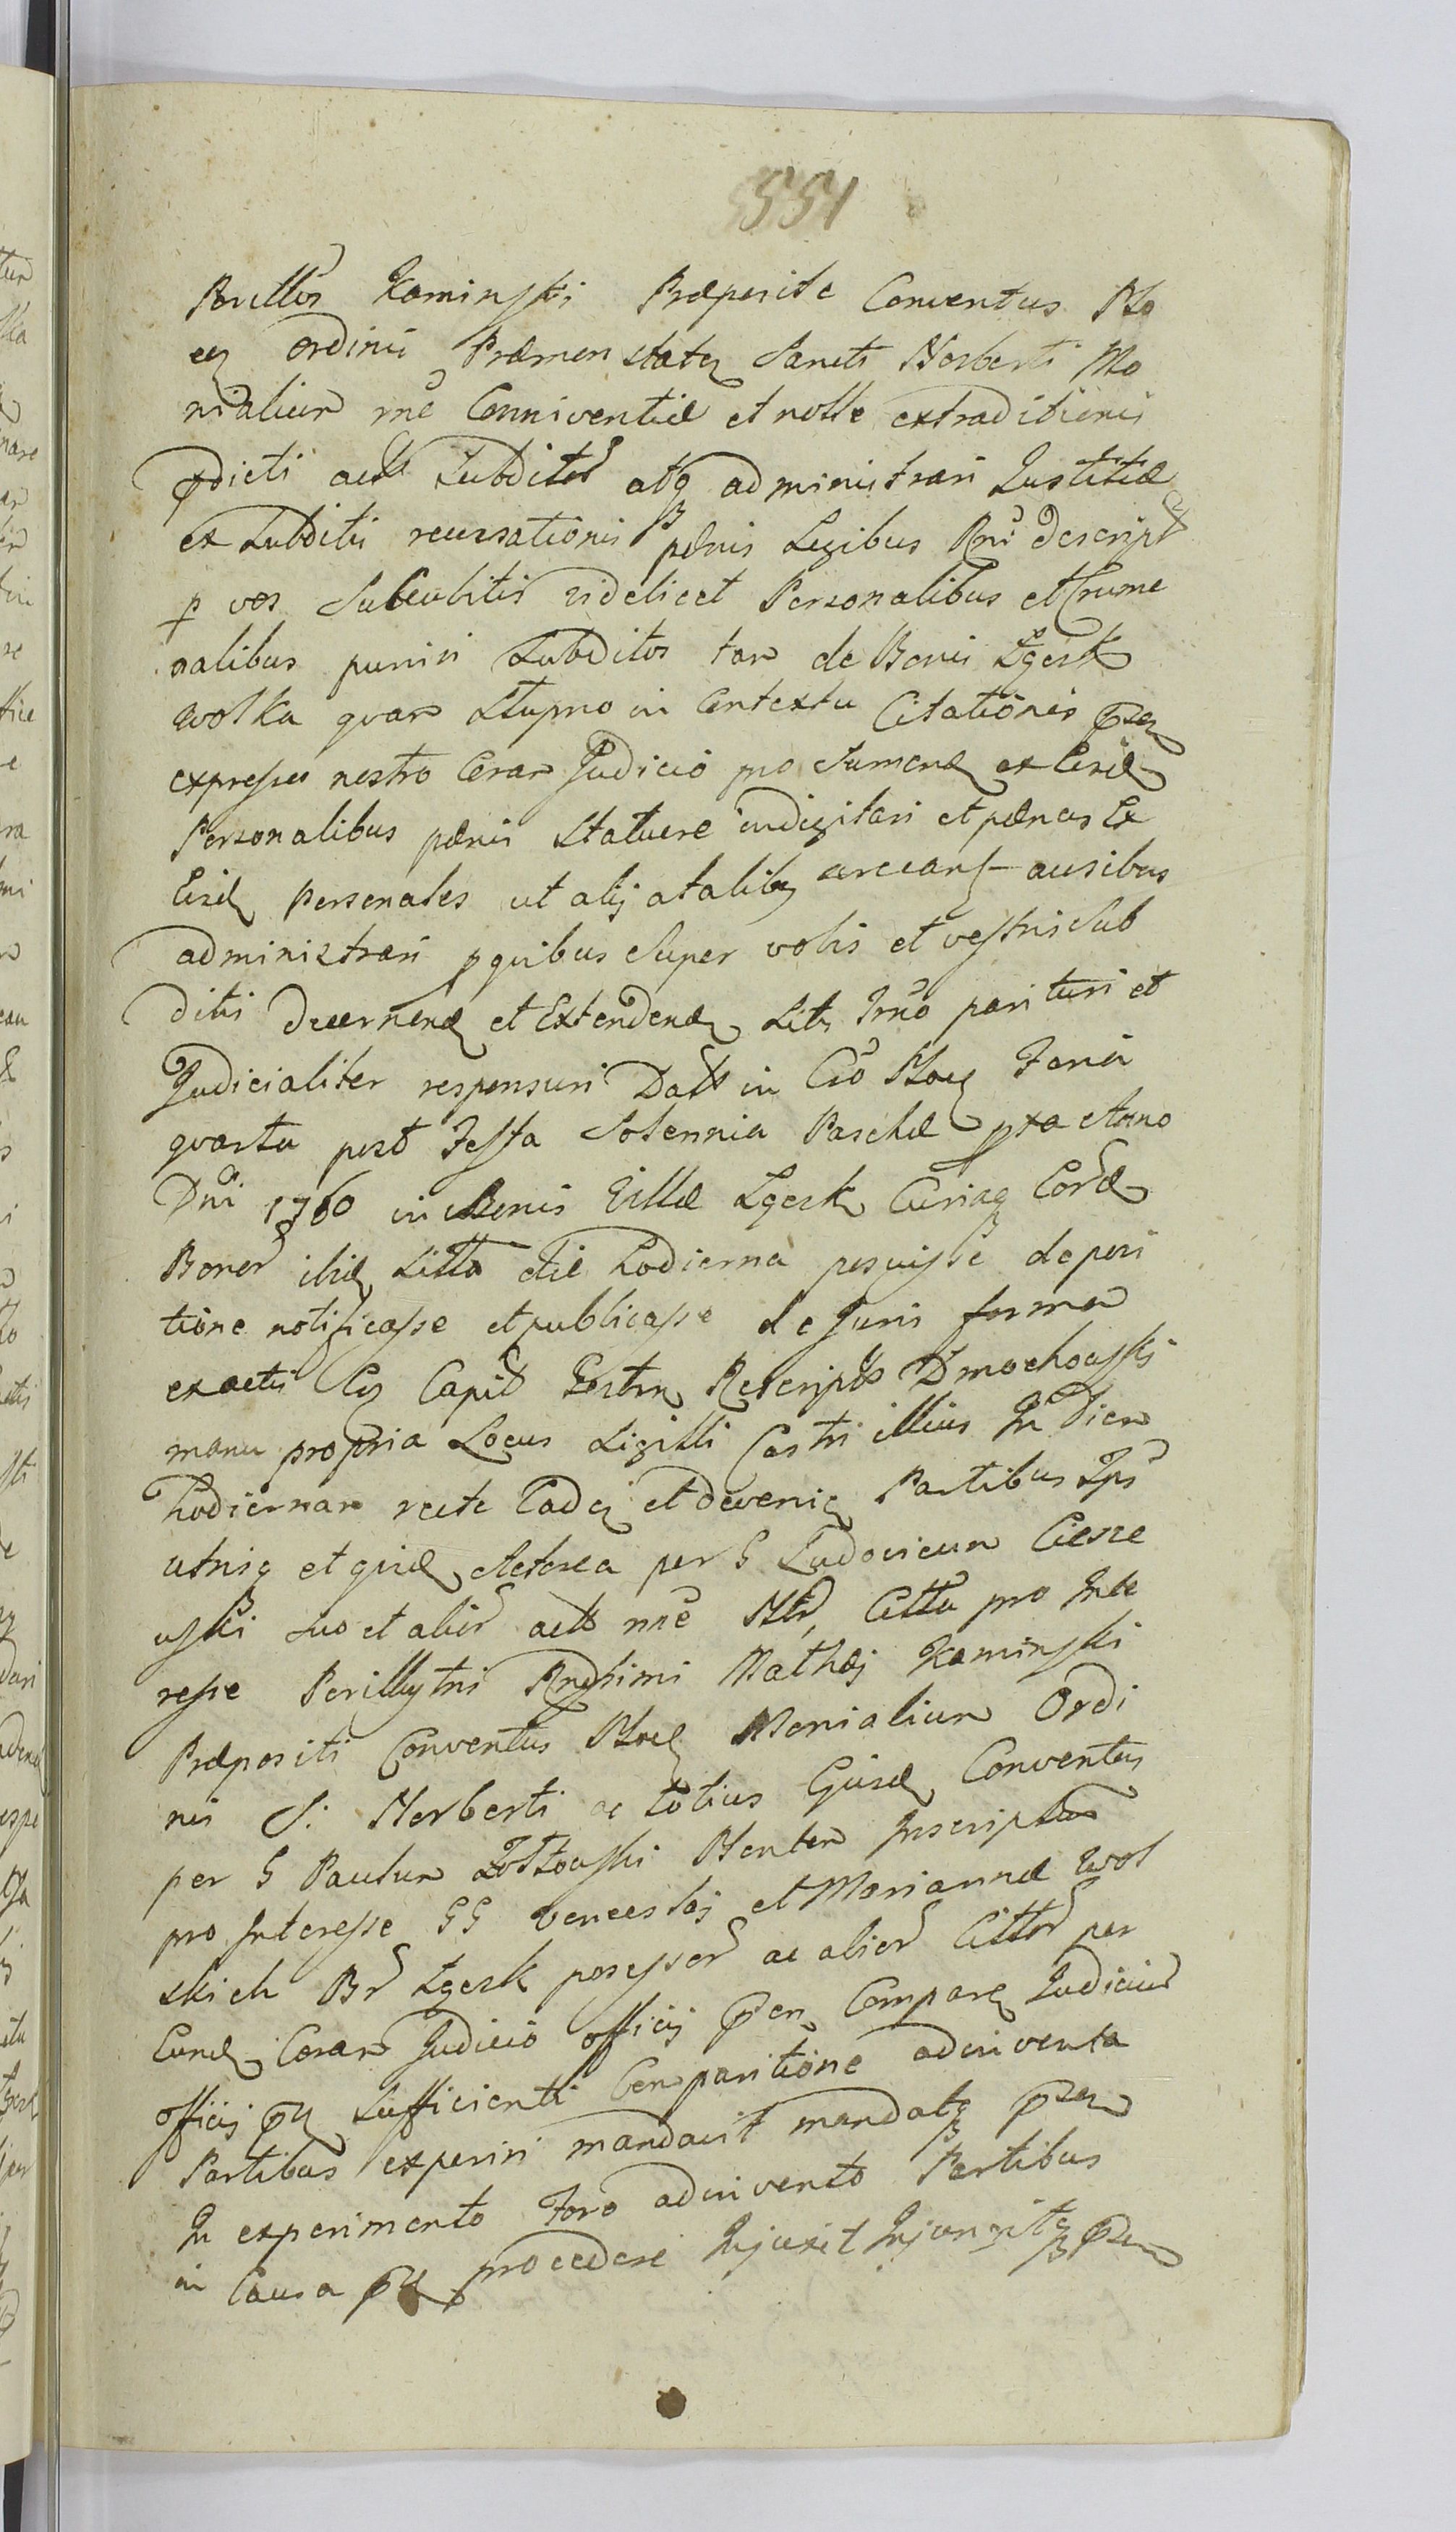 551
Perillris Kaminski Præposite Conventus Plo
cen ordinis Præmonstraten Sancti Norberti Mo
nialium rne Conniventiæ et nolle extraditionis
pdicti actt Subditor atq administrari Justitiæ
ex Subditis recusationis pænis Legibus Rni descript
p vos Succubitis videlicet Personalibus et Crume
nalibus puniri Subditos tam de Bonis Zgersk
Wolka quam Stupno in Contextu Citationis
expressis nostro Coram Judicio pro Sumend ex Eisd
Personalibus pænis Statuere indigitari et pænas Ex
Eisd personales ut alij a talibq arceant ausibus
administrari pquibus Super vobis et vestris Sub
ditis decernend et Extendend Litt Trno parituri et
Judicialiter responsuri Datt in Cro Ploc Feria
quarta post Festa Solennia Paschæ pxa Anno
Dni 1760 in Bonis Villæ Zgersk Curiaq Cord
Bonor ibid Sitta die hodierna posuisse de posi
tione notificasse et publicasse de Juris forma
ex actis Cs Capit Rescriptt Dmochowski
manu propria Locus Sigilli Castri illius In Diem
hodiernam recte Caden et deveniq Partibus Ips
utrisq et quid Actorea per G Ludovicum Ciesze
wski suo et alior actt rne Citta pro Inte
resse Perillustris Rndissimi Mathæj Kaminski
Præpositi Conventus Ploc Monialium Ordi
nis S. Norberti ac totius Ejusd Conventus
per G Paulum Zoltowski Inscriptus
pro Interesse GG Venceslaj et Mariannæ Wol
skich Br Zgersk possessor ac alior Cittor per
Eund Coram Judicio officij Pen Comparen Judicium
officij Sufficienti Comparitione adinventa
Partibus experiri mandavit mandatq
In experimento Foro adinvento Partibus
in Causa procedere Injunxit Injungitq